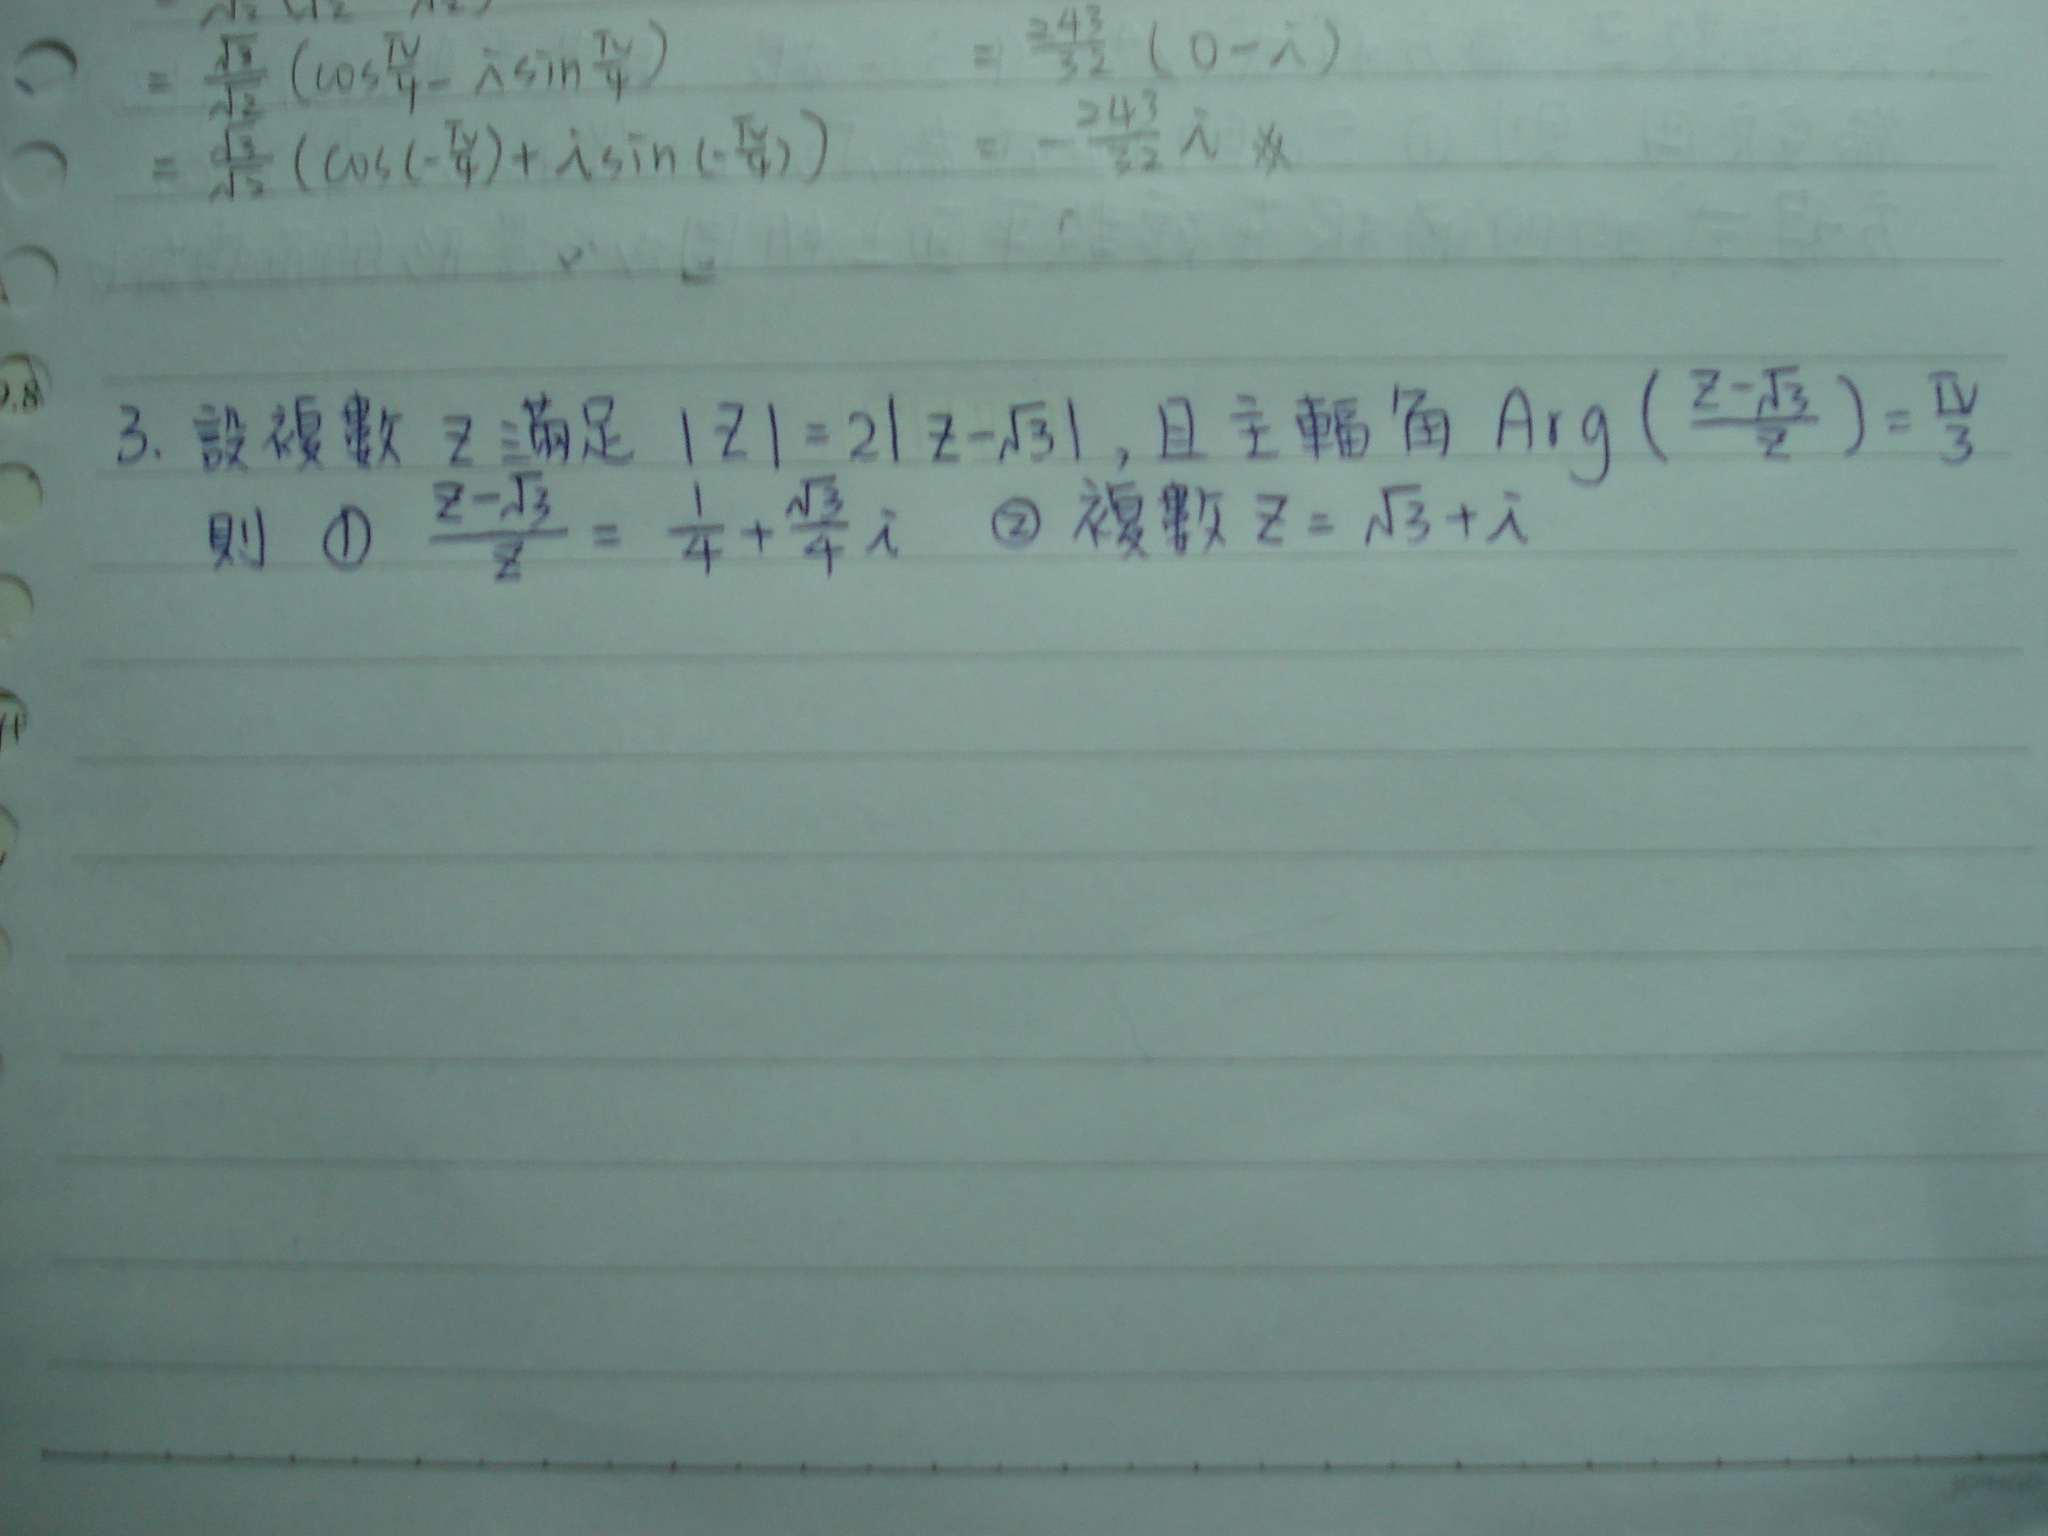 = √3/√2 (cos π/4 - i sin π/4) = 243/32 (0 - i)
= √3/√2 (cos(-π/4) + i sin(-π/4)) = - 243/32 i
3. 設複數 Z 滿足 |Z| = 2|Z-√3|, 且主輻角 Arg((Z-√3)/Z) = π/3
則 ① (Z-√3)/Z = 1/4 + √3/4 i ② 複數 Z = √3 + i